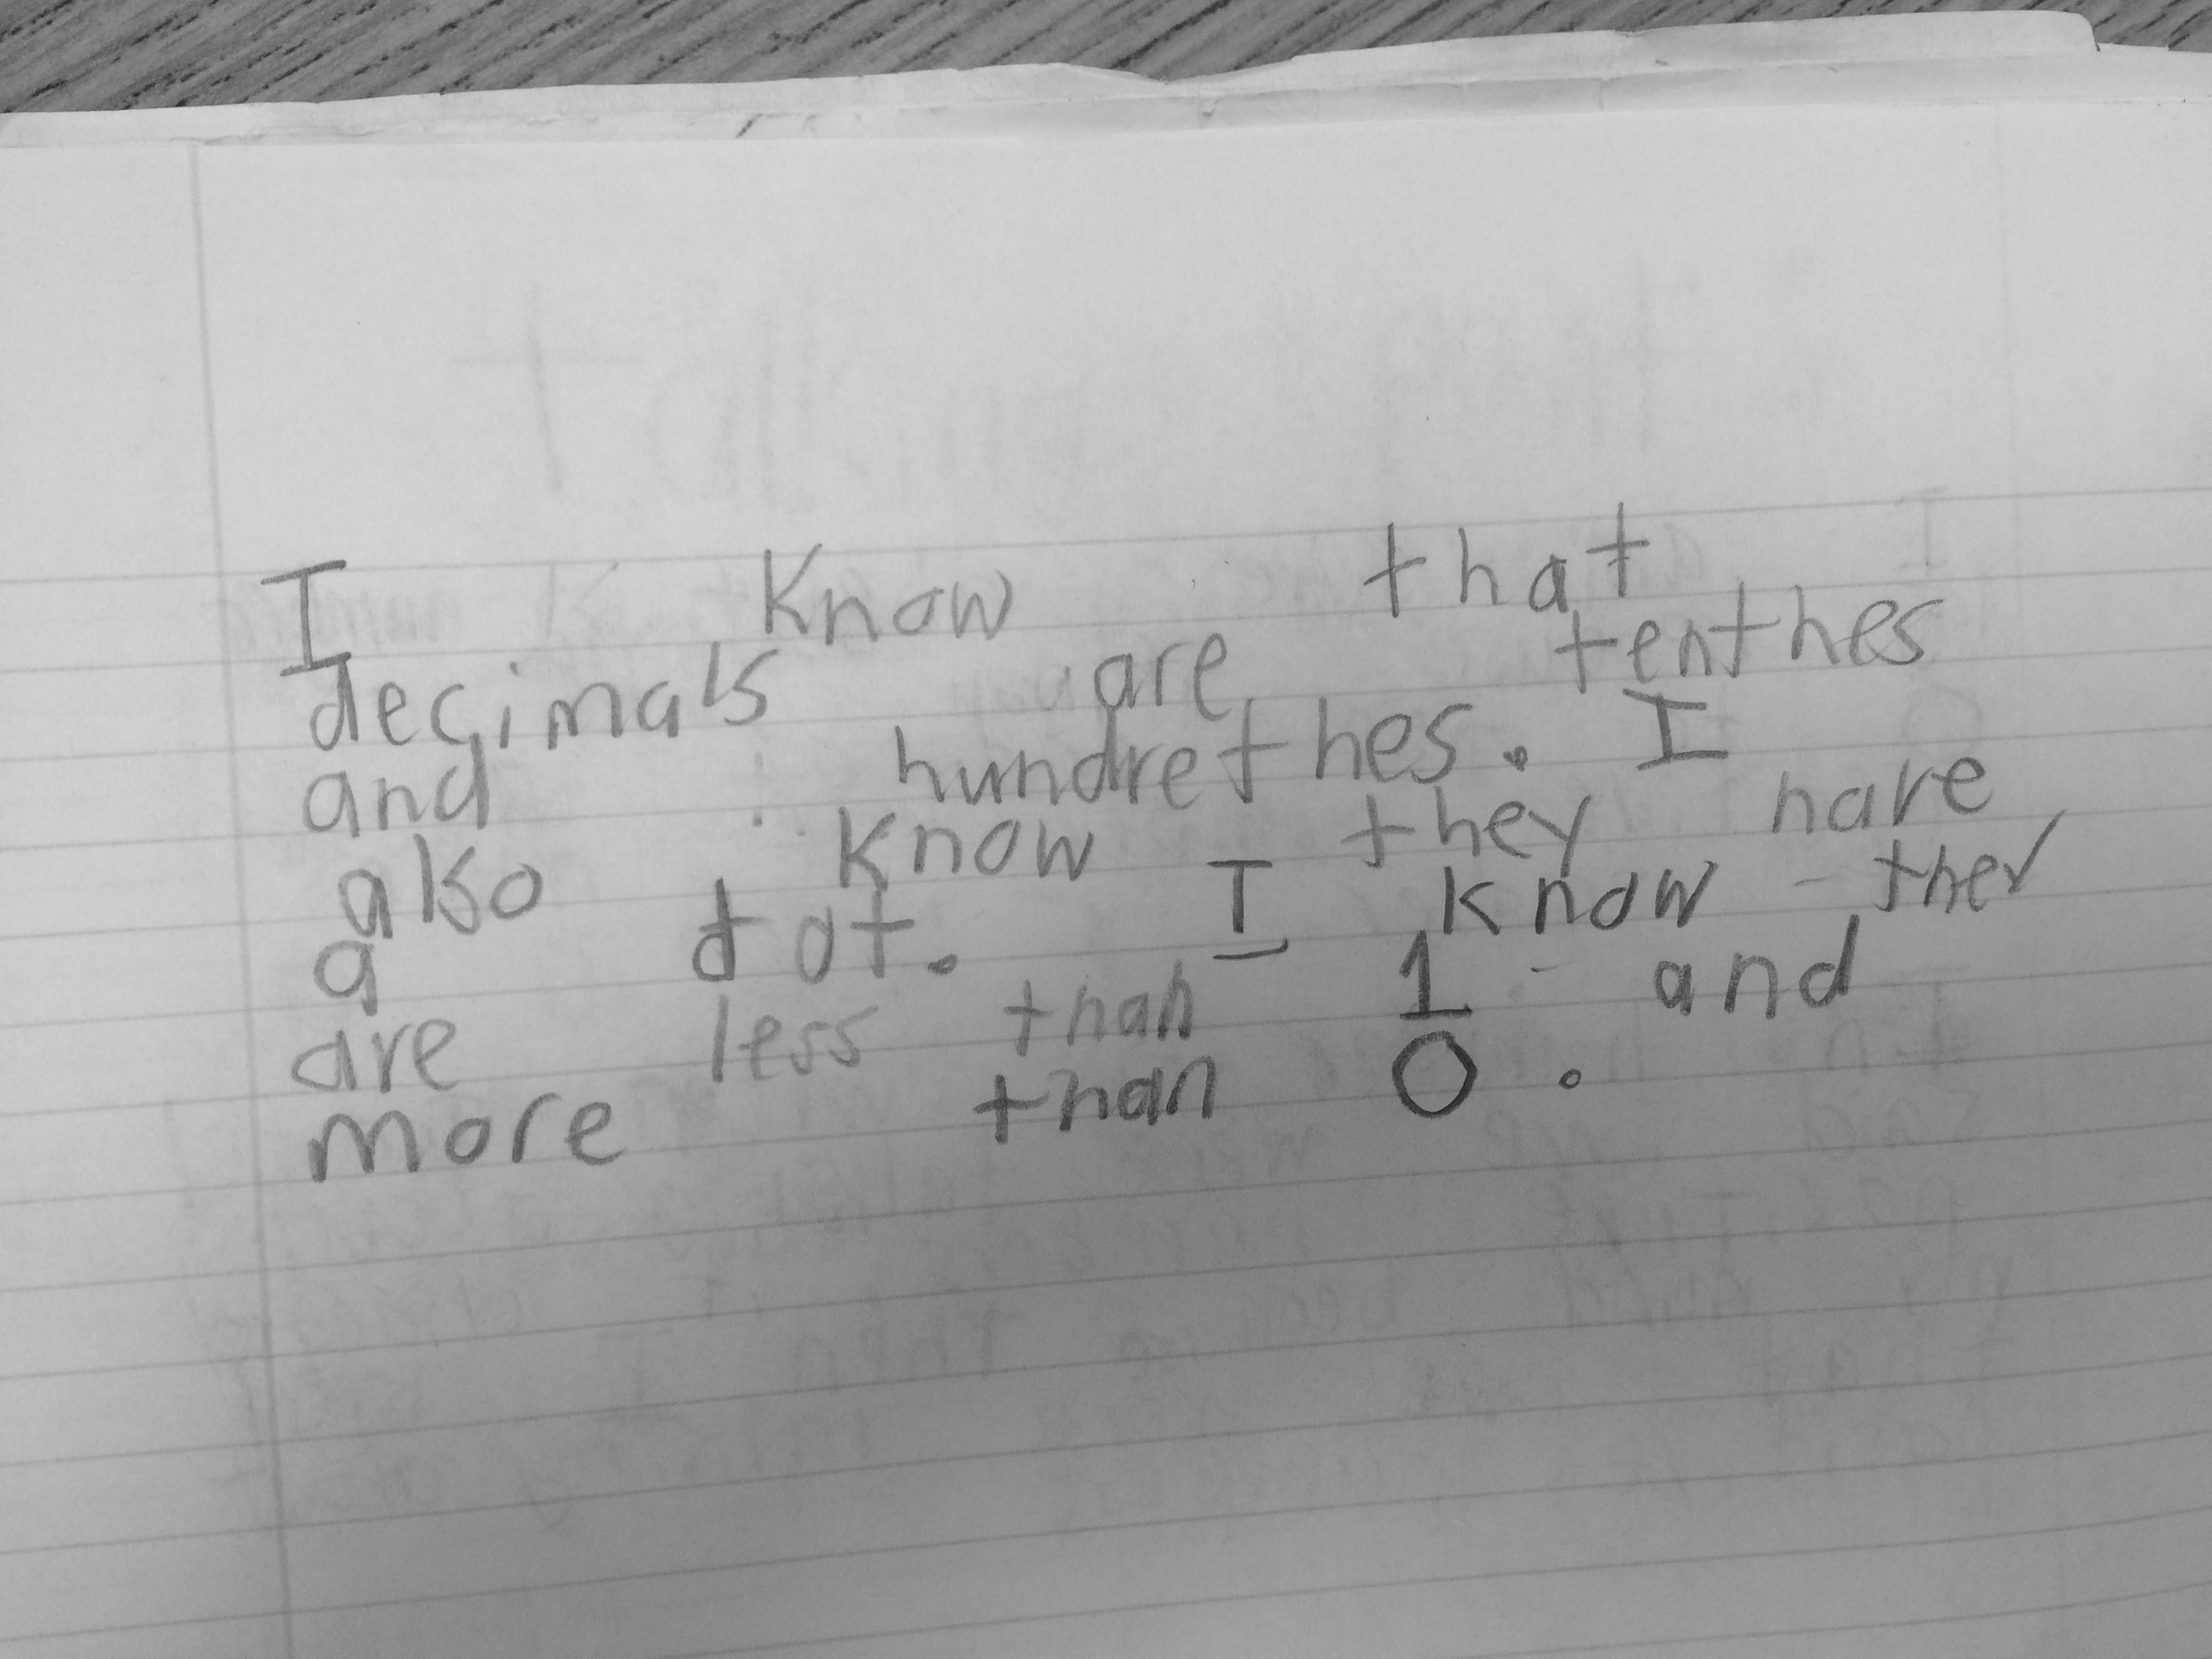 I know that
decimals are tenthes
and hundrethes. I
also know they have
a dot. I know they
are less than 1 and
more than 0.